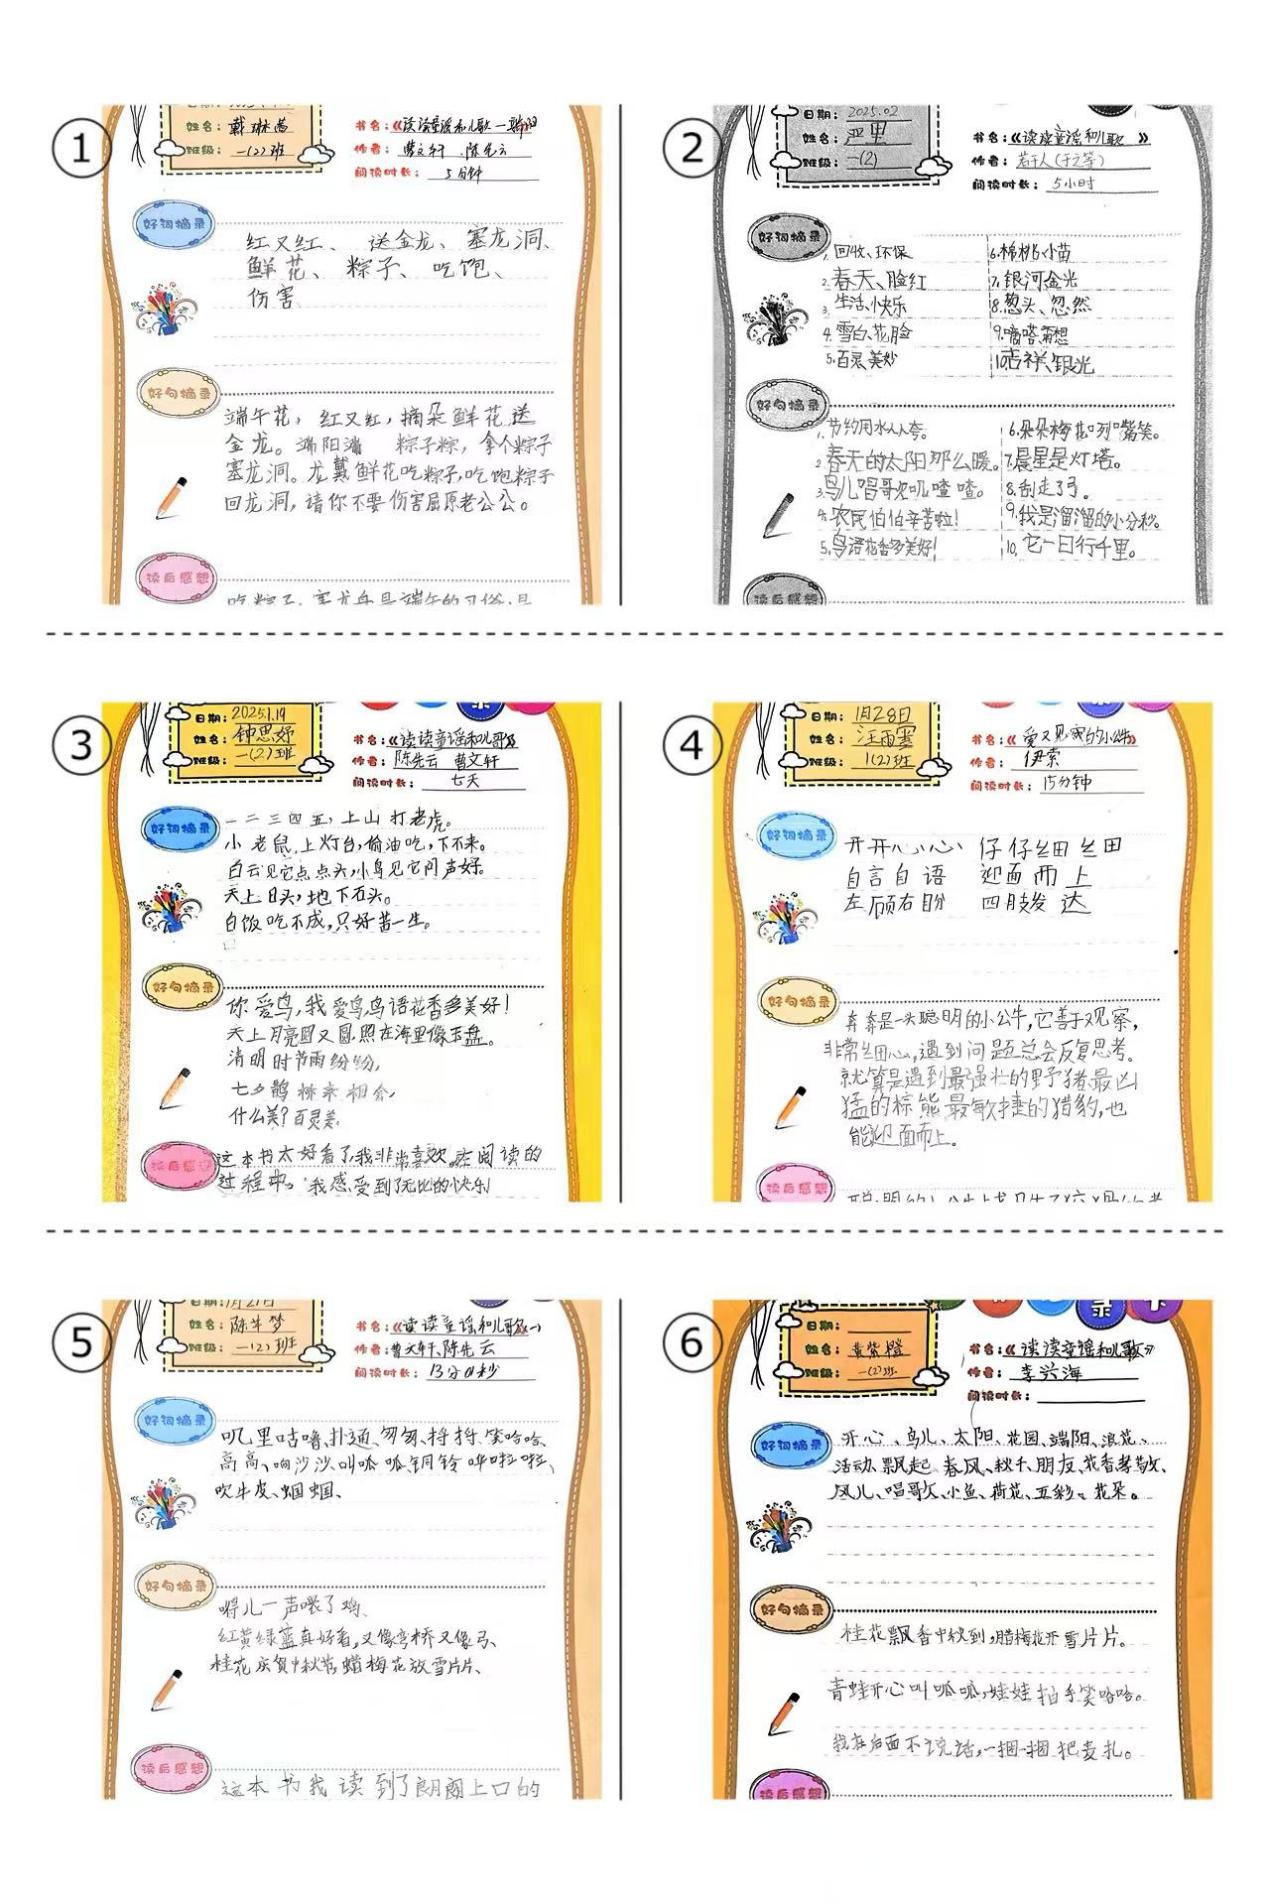 ①
姓名：戴琳茜
班级：一(2)班
书名：《读读童谣和儿歌一端阳
作者：曹文轩 陈先云
阅读时长：5分钟
好词摘录
红又红、送金龙、塞龙洞、
鲜花、粽子、吃饱、
伤害
好句摘录
端午花，红又红，摘朵鲜花送
金龙。端阳端 粽子粽，拿个粽子
塞龙洞。龙戴鲜花吃粽子，吃饱粽子
回龙洞，请你不要伤害屈原老公公。
读后感想
②
日期：2025.02
姓名：严里
班级：一(2)
书名：《读读童谣和儿歌》
作者：若干人(于之等)
阅读时长：5小时
好词摘录
1.回收、环保
2.春天、脸红
3.生活、快乐
4.雪白、花脸
5.百灵、美妙
6.棉桃、小苗
7.银河、金光
8.葱头、忽然
9.嘀嗒、
10.吉祥、银光
好句摘录
1.节约用水人人夸。
2.春天的太阳那么暖。
3.鸟儿唱歌叽喳喳。
4.农民伯伯辛苦啦！
5.鸟语花香多美好！
6.朵朵梅花咧嘴笑。
7.晨星是灯塔。
8.刮走了弓。
9.我是溜溜的小分秒。
10.它一日行千里。
读后感想
③
日期：2025.1.19
姓名：钟思妤
班级：一(2)班
书名：《读读童谣和儿歌》
作者：陈先云 曹文轩
阅读时长：七天
好词摘录
一二三四五，上山打老虎。
小老鼠，上灯台，偷油吃，下不来。
白云见它点点头，小鸟见它问声好。
天上日头，地下石头。
白饭吃不成，只好苦一生。
好句摘录
你爱鸟，我爱鸟，鸟语花香多美好！
天上月亮圆又圆，照在海里像玉盘。
清明时节雨纷纷，
七夕鹊桥来相会，
什么美？百灵美。
读后感想
这本书太好看了，我非常喜欢。在阅读的
过程中。我感受到了无比的快乐！
④
日期：1月28日
姓名：汪雨塞
班级：1(2)班
书名：《爱又见察的小公牛》
作者：伊索
阅读时长：15分钟
好词摘录
开开心心 仔仔细细
自言自语 迎面而上
左顾右盼 四肢发达
好句摘录
奔奔是一头聪明的小公牛，它善于观察，
非常细心，遇到问题总会反复思考。
就算是遇到最强壮的野猪最凶
猛的棕熊最敏捷的猎豹，也
能迎面而上。
读后感想
⑤
日期：1月21日
姓名：陈芊梦
班级：一(2)班
书名：《读读童谣和儿歌(一)
作者：曹文轩、陈先云
阅读时长：13分01秒
好词摘录
叽里咕噜、扑通、匆匆、将将、笑哈哈、
高高、响沙沙、叫呱呱、铜铃、哗啦啦、
吹牛皮、蝈蝈、
好句摘录
嘚儿一声喂了鸡、
红黄绿蓝真好看，又像弯桥又像弓、
桂花庆贺中秋节，蜡梅花放雪片片、
读后感想
这本书我读到了朗朗上口的
⑥
日期：
姓名：黄紫橙
班级：一(2)班
书名：《读读童谣和儿歌》
作者：李兴海
阅读时长：
好词摘录
开心、鸟儿、太阳、花园、端阳、浪花、
活动、飘起、春风、秋千、朋友、花香、
风儿、唱歌、小鱼、荷花、五彩、花朵。
好句摘录
桂花飘香中秋到，腊梅花开雪片片。
青蛙开心叫呱呱，娃娃拍手笑哈哈。
我在后面不说话，一捆一捆把麦扎。
读后感想